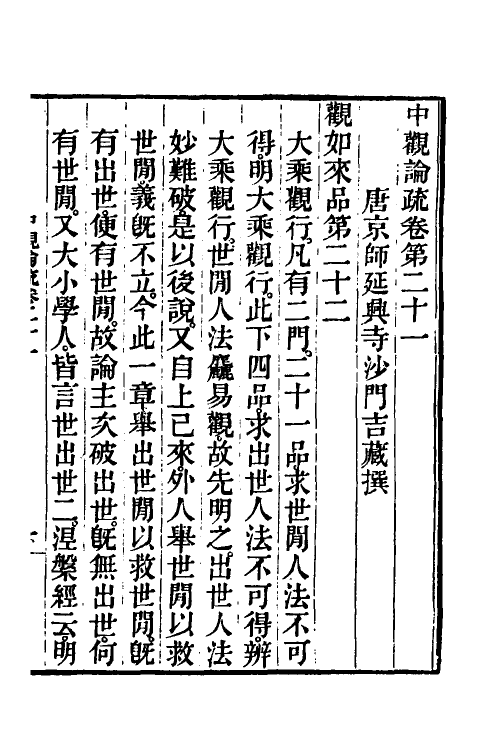 中觀論疏卷第二十一
唐京師延興寺沙門吉藏撰
觀如來品第二十二
大乘觀行。凡有二門。二十一品。求世閒人法不可
得。明大乘觀行。此下四品。求出世人法不可得。辨
大乘觀行。世閒人法麤易觀。故先明之。出世人法
妙難破。是以後說。又自上已來。外人舉世閒以救
世閒義旣不立。今此一章。舉出世閒以救世閒。旣
有出世。便有世閒。故論主次破出世。旣無出世。何
有世閒。又大小學人。皆言世出世二。涅槃經云。明
中觀論疏卷二十一